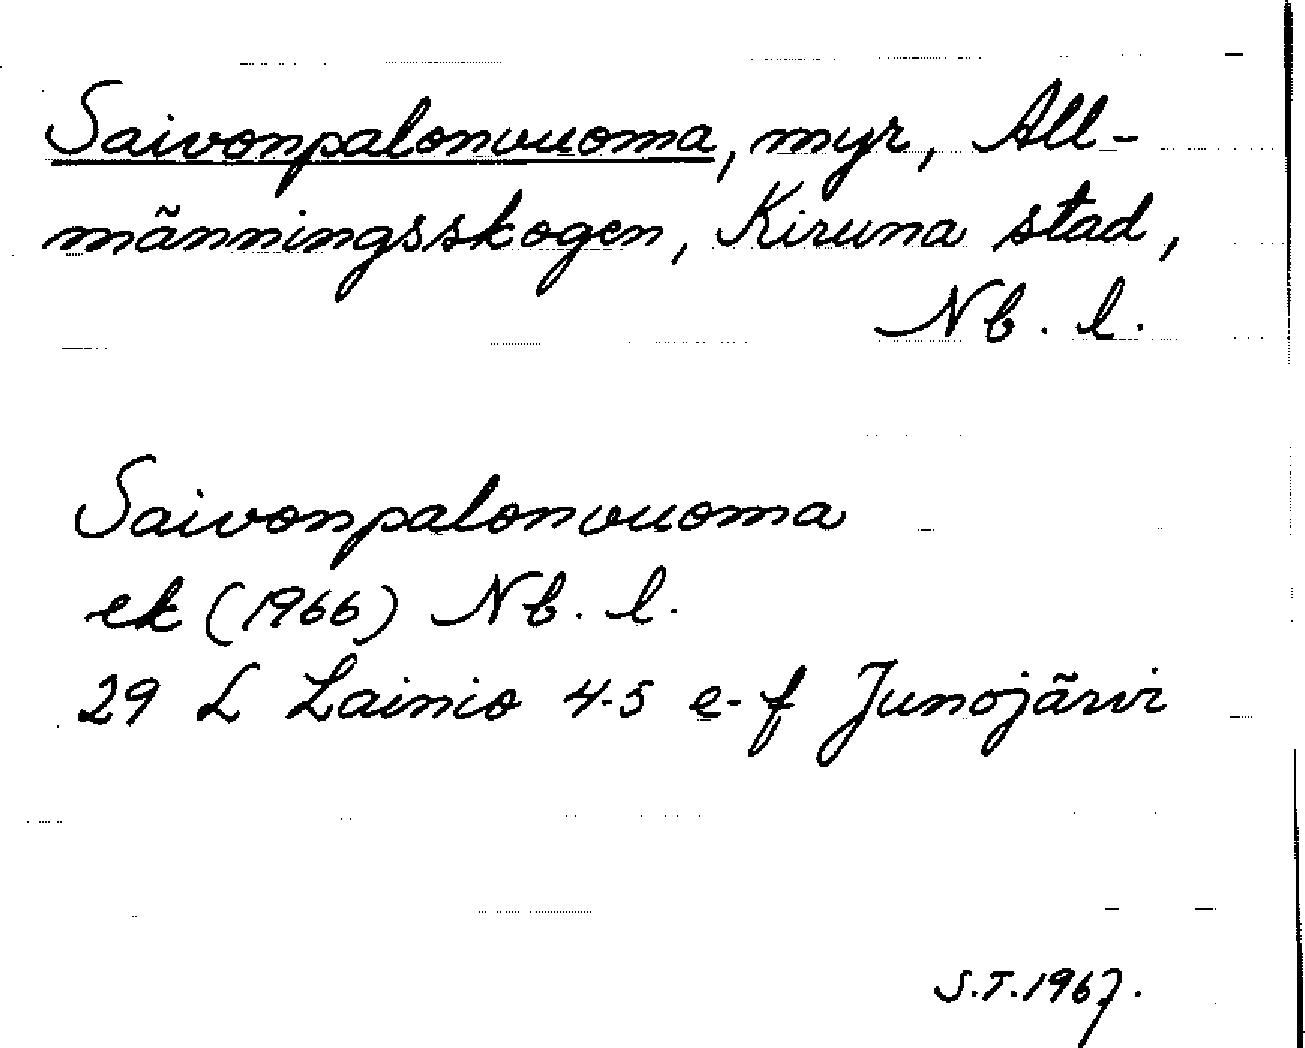 Saivonpalonvuoma, myr, All-
männingsskogen, Kiruna stad,
Nb. l.
Saivonpalonvuoma
ek (1966) Nb. l.
29 L Lainio 4-5 e-f Junojärvi
S.T. 1967.